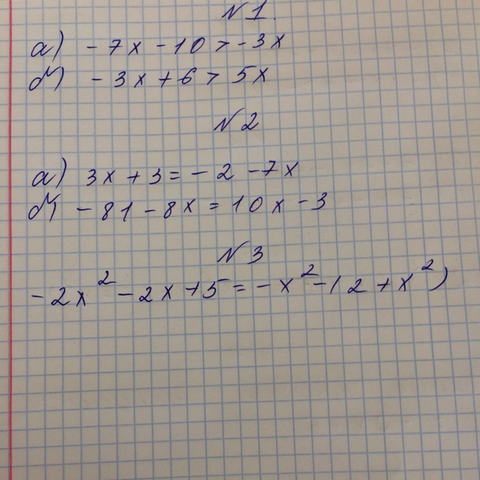 №1.
а) -7x -10 > -3x
б) -3x + 6 > 5x
№2
а) 3x + 3 = -2 -7x
б) -81 - 8x = 10x - 3
№3
-2x² - 2x + 5 = -x² - (2 + x²)